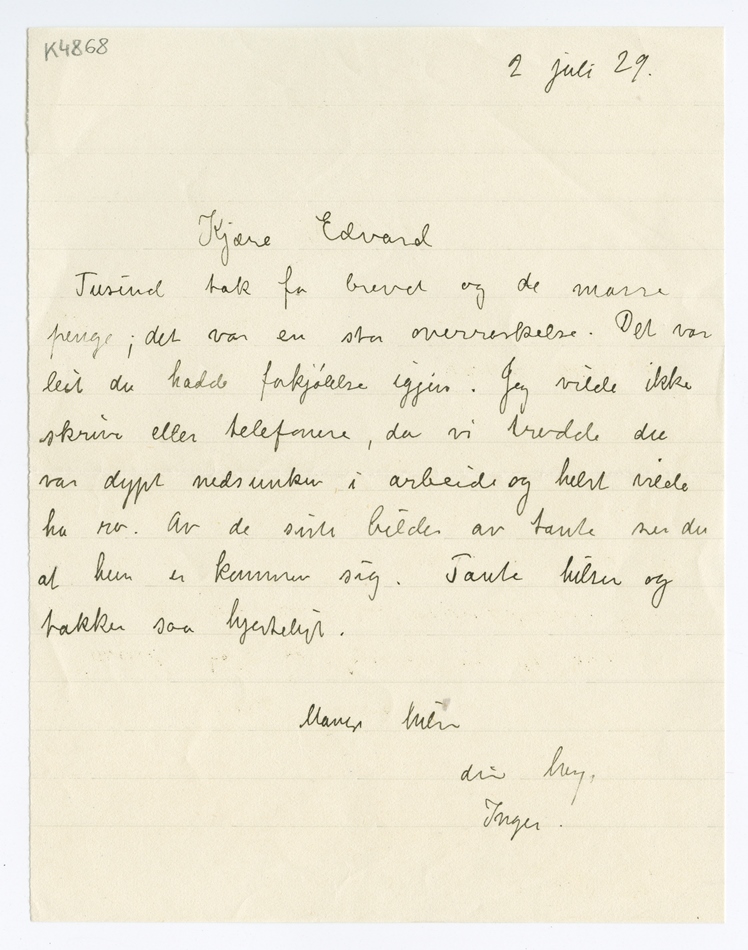 K4868
2 juli 29.
Kjære Edvard
Tusind tak for brevet og de masse
penge; det var en stor overraskelse. Det var
leit du hadde forkjølelse igjen. Jeg vilde ikke
skrive eller telefonere, da vi trodde du
var dypt nedsunken i arbeide og helst vilde
ha ro. Av de siste billeder av tante ser du
at hun er kommen sig. Tante hilser og
takker saa hjerteligt.
Mange hilsn
din
Inger.